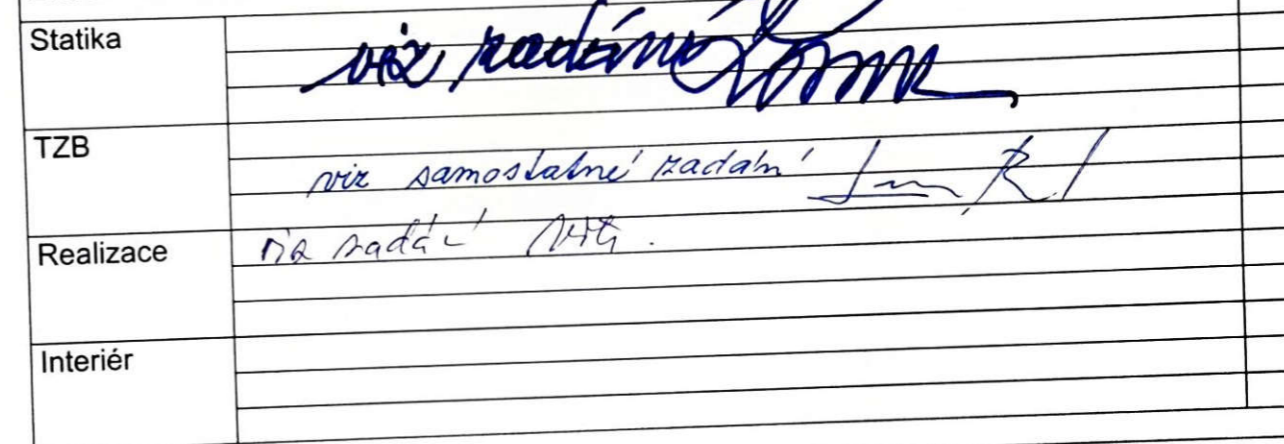 Statika
viz zadání
TZB
viz samostatné zadání
Realizace
viz zadání
Interiér